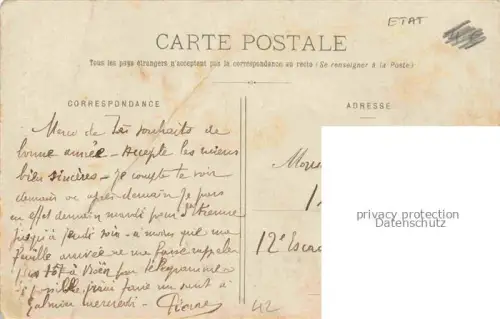 ETAT
CARTE POSTALE
Tous les pays étrangers n'acceptent pas la correspondance au recto (Se renseigner à la Poste)
CORRESPONDANCE
ADRESSE
Merci de souhaits de
bonne année - Accepte les miens
bien sincères - je compte te voir
demain ou après demain je pars
en effet demain mardi pour St Etienne
jusqu'à jeudi soir - à moins que ma
feuille arrivée ne me fasse rappeler
à Boën par télégramme
si possible j'irai faire un saut à
Galmier mercredi - Pierre
12e
42
privacy protection
Datenschutz